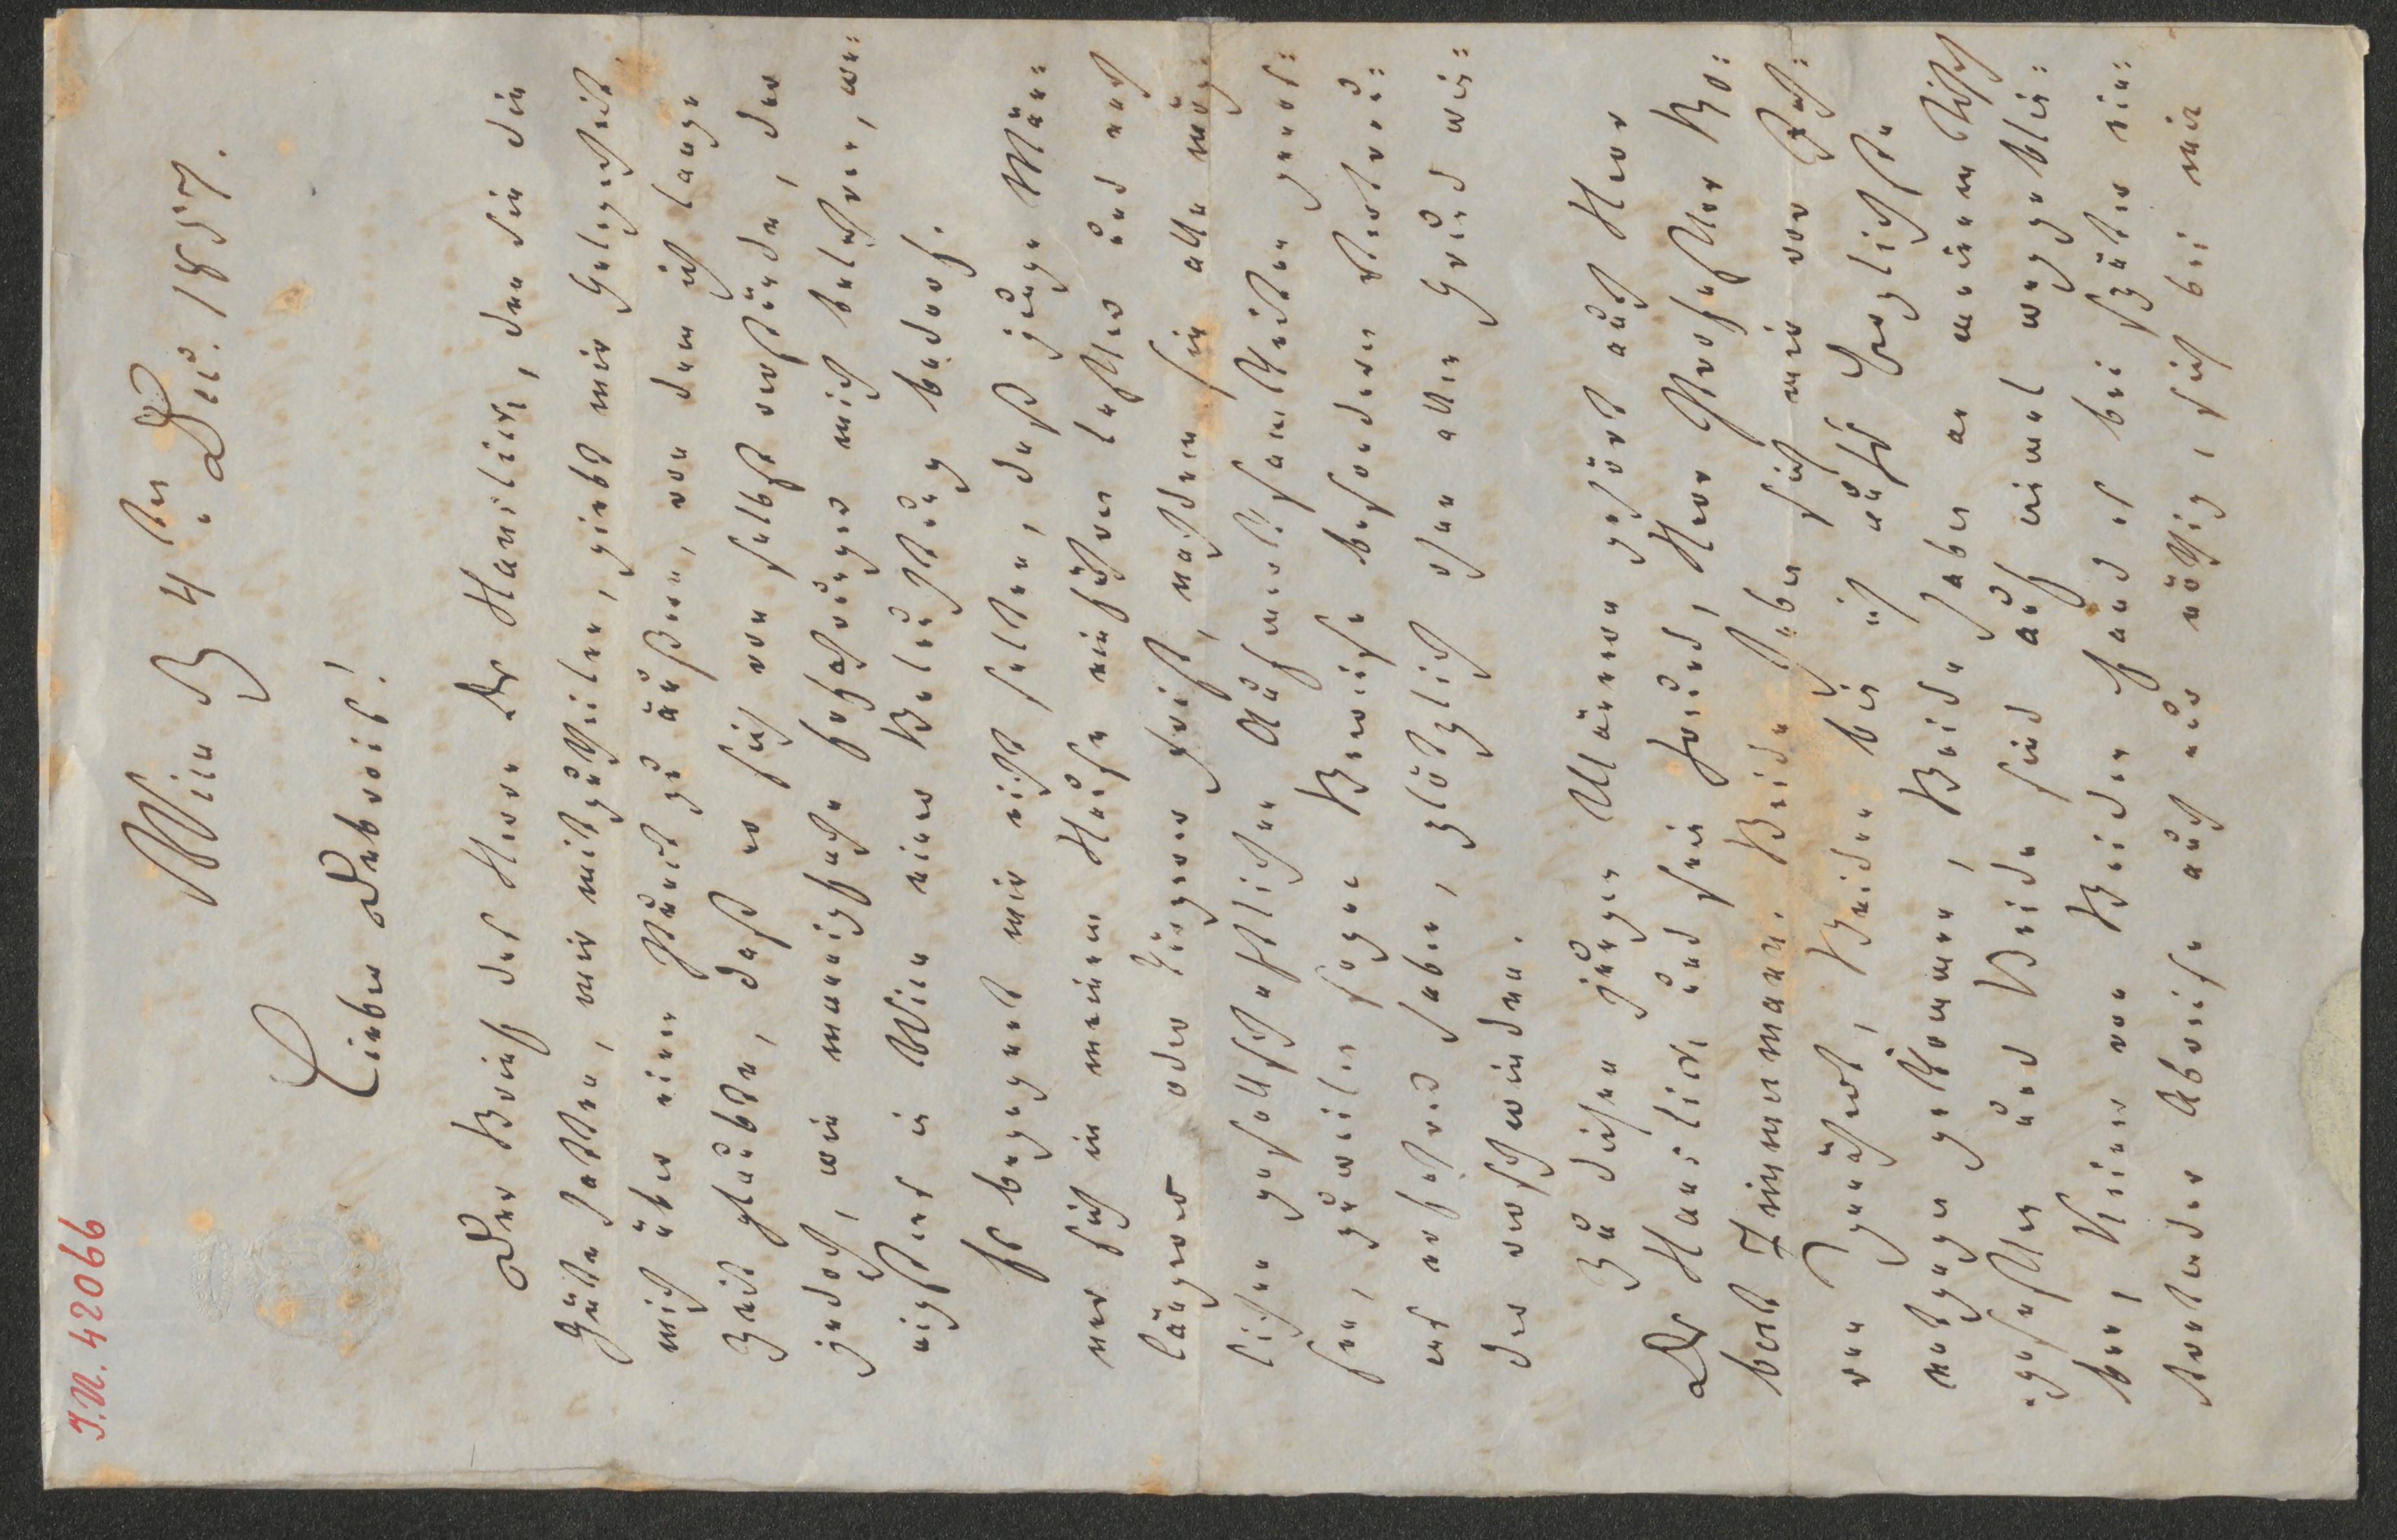 I.N. 42066
Wien 4ten Dec. 1857.
Lieber Debrois!
Der Brief des Herrn Dr Hanslick, den Sie die
Güte hatten, mir mitzutheilen, giebt mir Gelegenheit
mich über einen Punct zu äußern, von dem ich lange
Zeit glaubte, daß er sich von selbst verstünde, der
jedoch, wie mannigfache Erfahrungen mich belehren, we-
nigstens in Wien einer Beleuchtung bedarf.
Es begegnet mir nicht selten, daß junge Män-
ner sich in meinem Hause einführen laßen und nach
längerer oder kürzerer Frist, nachdem sie alle mög-
lichen gesellschaftlichen Aufmerksamkeiten genos-
sen, zuweilen sogar Beweise besonderen Vertrau-
ens erhalten haben, plötzlich ohne allen Grund wie-
der verschwinden.
Zu diesen jungen Männern gehört auch Herr
Dr Hanslick und sein Freund, Herr Professor Ro-
bert Zimmermann. Beide haben sich mir vor Jah-
ren genähert, Beiden bin ich aufs Herzlichste
entgegen gekommen, Beide haben an meinem Tisch
gesessen und Beide sind auf einmal weggeblie-
ben, Keiner von Beiden fand es bei später ein-
tretender Abreise auch nur nöthig, sich bei mir